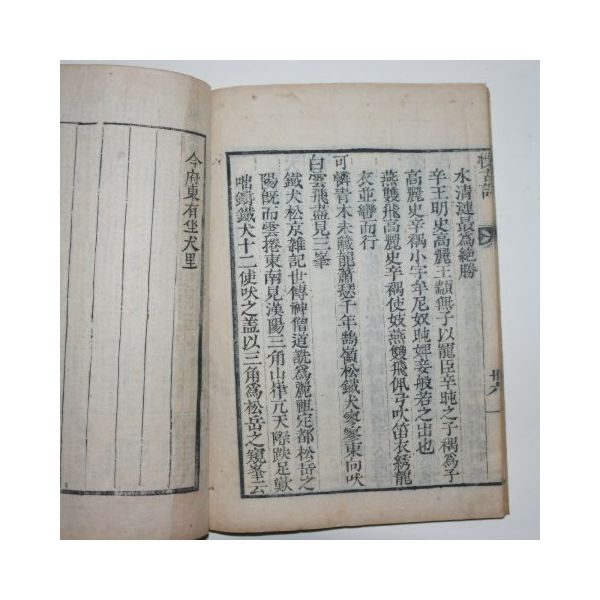 水清漣最爲絶勝
辛王明史高麗王顓無子以寵臣辛旽之子禑爲子
高麗史辛禑小字牟尼奴旽婢妾般若之出也
燕雙飛高麗史辛禑使妓燕雙飛佩弓吹笛衣繡龍
衣並轡而行
可憐青木未藏龍蕭瑟千年鵠嶺松鐵犬寥寥東向吠
白雲飛盡見三峯
鐵犬松京雜記世傳神僧道詵爲麗祖定都松岳之
陽旣而雲捲東南見漢陽三角山崒兀天際跌足歎
咄鑄鐵犬十二使吠之盖以三角爲松岳之窺峯云
今府東有坐犬里